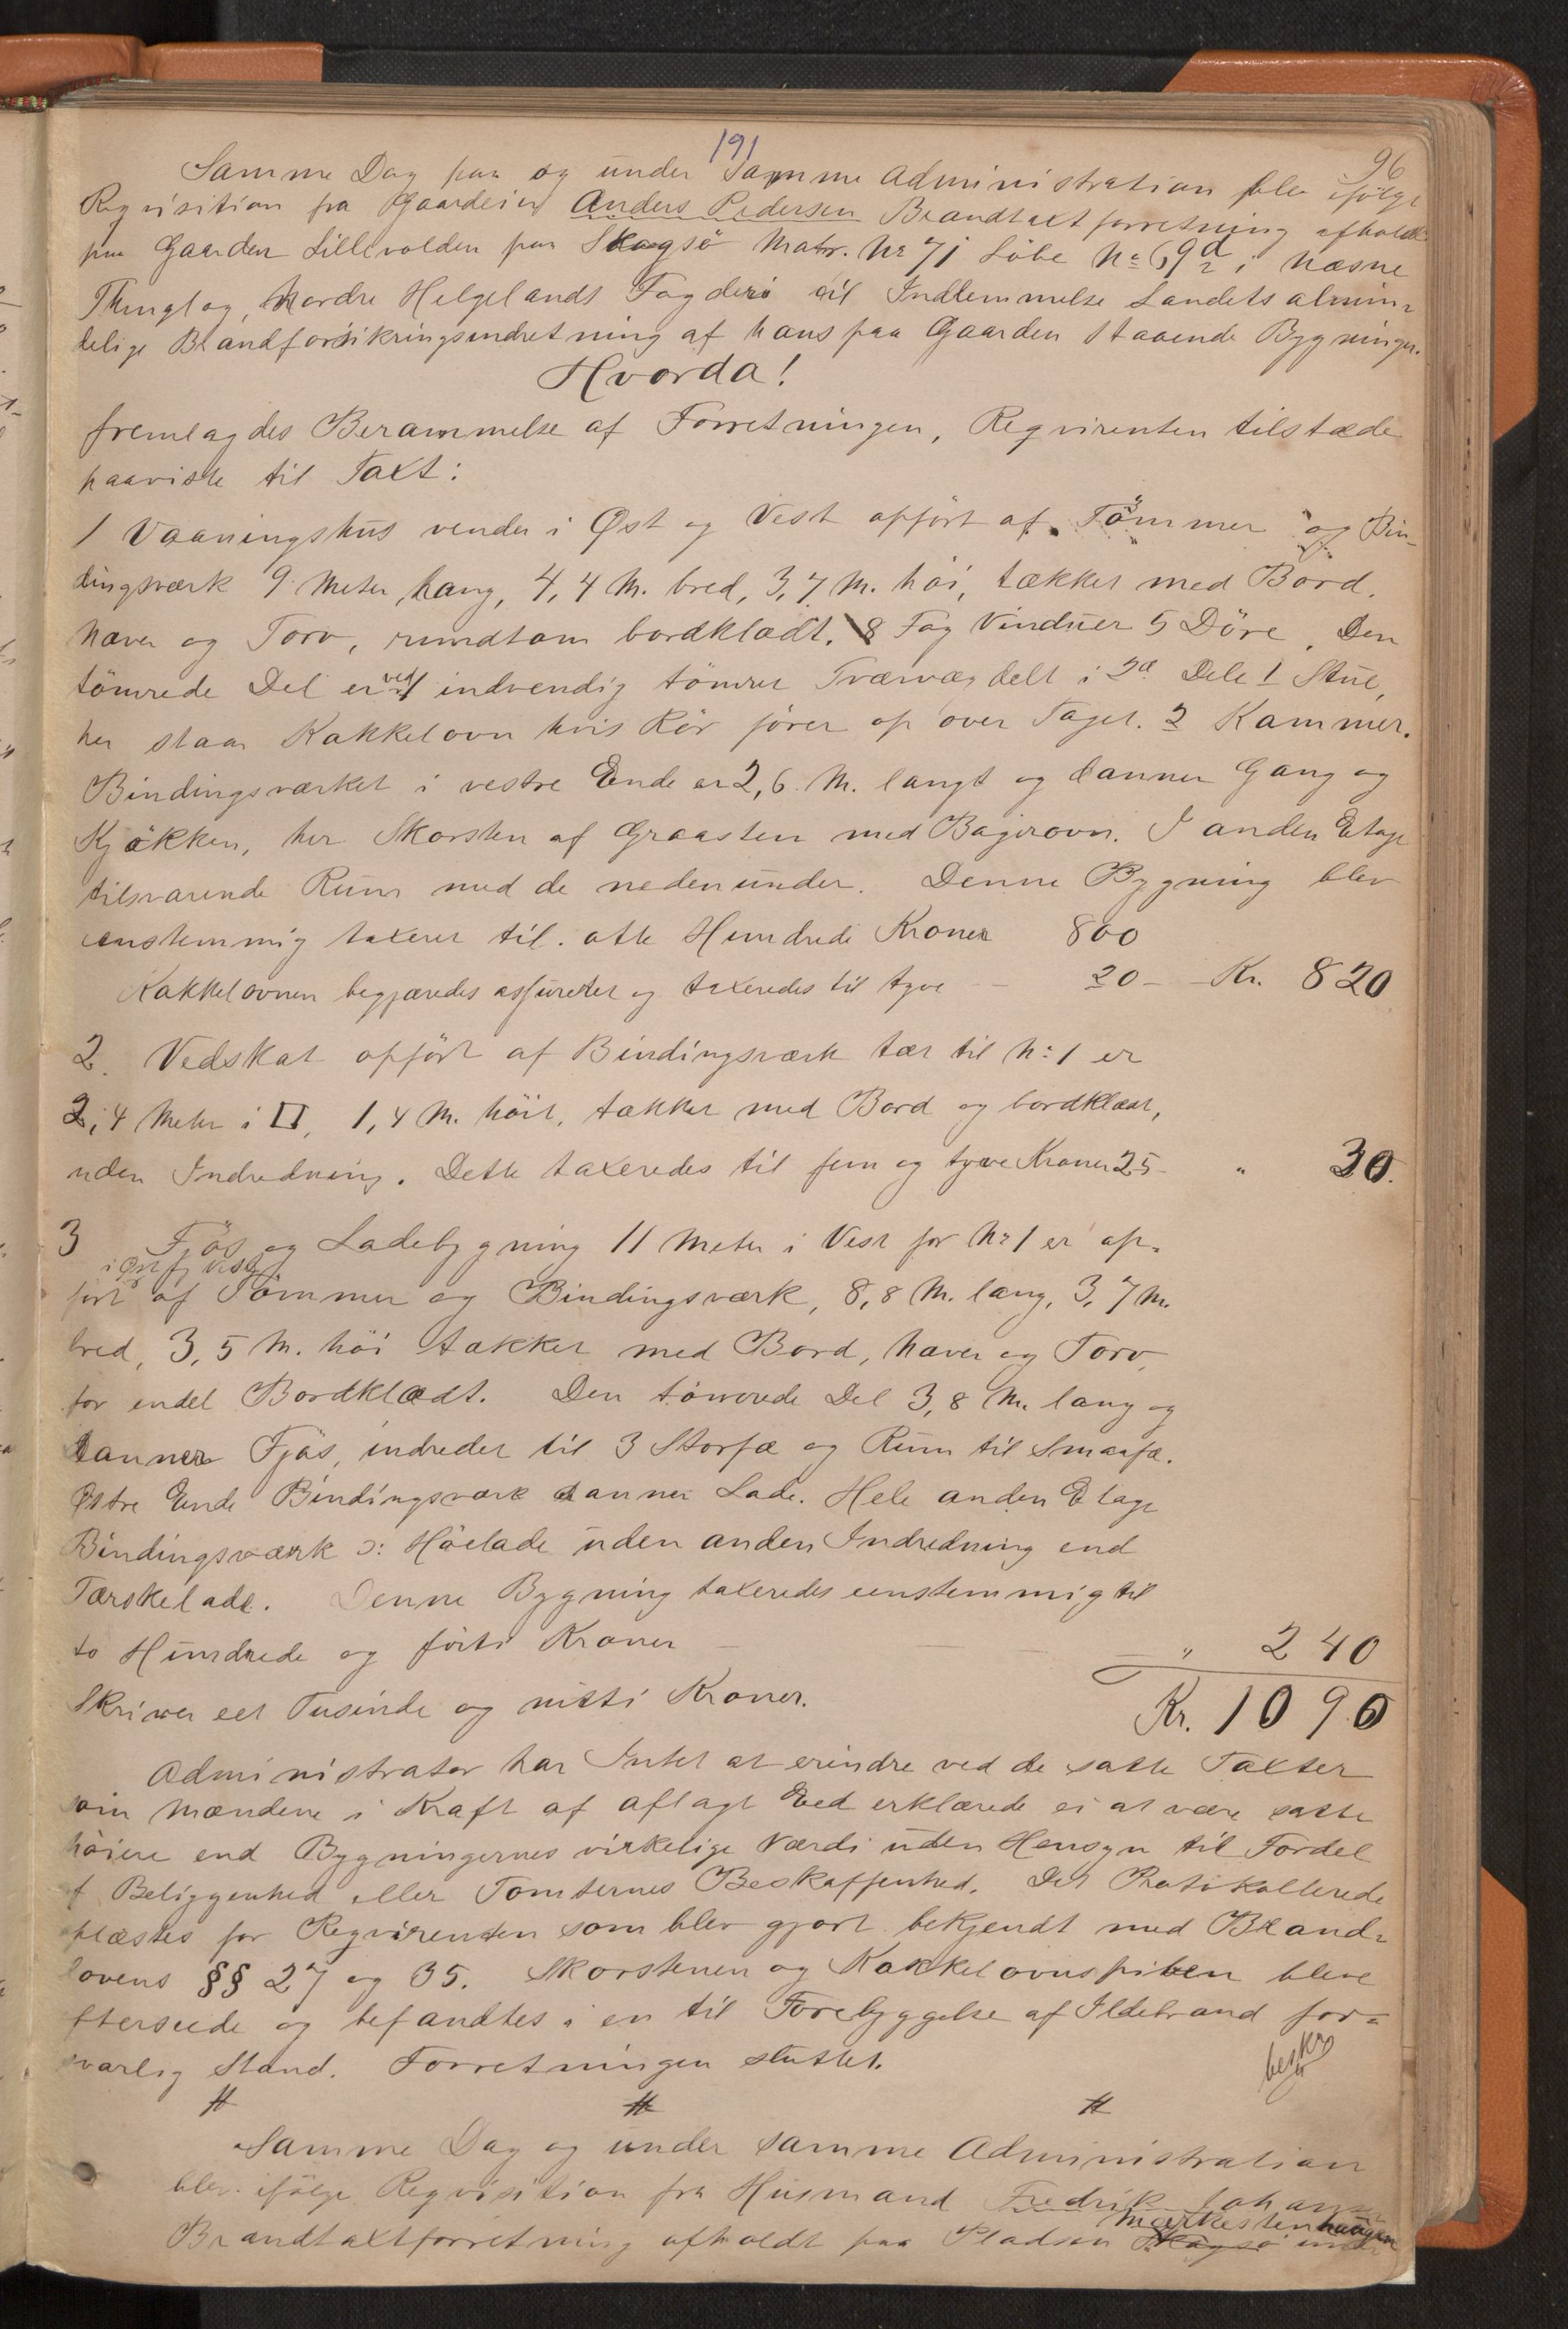 191
96
Samme Dag paa og under Samme Administration blev ifölge
Reqvisition fra Gaardeier Anders Pedersen Brandtaxtforretning afholdt
paa Gaarden Lillevolden paa Skogsö Matr. No 71 Löbe No 69d2 i Næsne
Thinglag, Nordre Helgelands Fogderi til Indlemmelse Landets almin-
delige Brandforsikringsindretning af hans paa Gaarden staaende Bygninger.
Hvorda!
fremlagdes Berammelse af Forretningen, Reqvirenten tilstæde
paaviste til Taxt:
1 Vaaningshus vender i Øst og Vest opfört af Tömmer og Bin-
dingsværk 9 Meter lang, 4,4 M. bred, 3,7 M. höi, tækket med Bord,
Næver og Torv, rundtom bordklædt. 8 Fag Vinduer 5 Döre. Den
tömrede Del er ved 1 indvendig tömret Tværvæg delt i 2de Dele 1 Stue,
her staar Kakkelovn hvis Rör förer op over Taget. 2 Kammer.
Bindingsværket i vestre Ende er 2,6 M. langt og danner Gang og
Kjökken, her Skorsten af Graasten med Bagerovn. I anden Etage
tilsvarende Rum med de nedenunder. Denne Bygning blev
enstemmig taxeret til otte Hundrede Kroner 800
Kakkelovnen begjæredes assureret og taxeredes til tyve — 20 — Kr. 820
2. Vedskat opfört af Bindingsværk tæt til No 1 er
2,4 Meter i □, 1,4 M. höit, tækket med Bord og bordklædt,
uden Indredning. Dette taxeredes til fem og tyve Kroner 25 - " 30.
3 Fjös og Ladebygning 11 Meter i Vest for No 1 er op-
i Øst og Vest
fört af Tömmer og Bindingsværk, 8,8 M. lang, 3,7 M.
bred, 3,5 M. höi tækket med Bord, Næver og Torv,
for endel Bordklædt. Den tömrede Del 3,8 M. lang og
danner Fjös, indredet til 3 Storfæ og Rum til Smaafæ.
Østre Ende Bindingsværk danner Lade. Hele anden Etage
Bindingsværk ɔ: Hölade uden anden Indredning end
Tærskelade. Denne Bygning taxeredes eenstemmig til
to Hundrede og förti Kroner — " 240
Skriver eet Tusinde og nitti Kroner. Kr. 1090
Administrator har Intet at erindre ved de satte Taxter
som Mændene i Kraft af aflagt Eed erklærede ei at være satte
höiere end Bygningernes virkelige Værdi uden Hensyn til Fordel
f Beliggenhed eller Tomternes Beskaffenhed. Det Protokollerede
plæstes for Reqvirenten som blev gjort bekjendt med Brand-
lovens §§ 27 og 35. Skorstenen og Kakkelovnspiben bleve
fterseede og befandtes i en til Forebyggelse af Ildebrand for-
svarlig Stand. Forretningen sluttet.
beskr
# # #
Samme Dag og under samme Administration
blev ifölge Reqvisition fra Husmand Fredrik Johans
Markestenhaugen
Brandtaxtforretning afholdt paa Pladsen Skogsö under